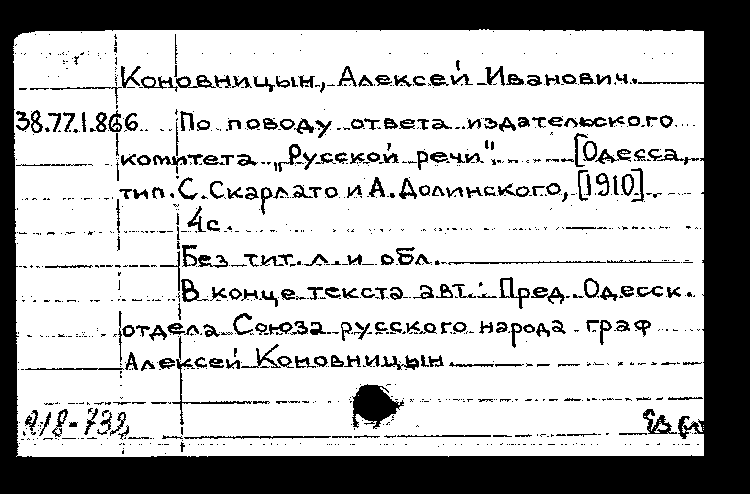 Коновницын, Алексей Иванович.
38.77.1.866 По поводу ответа издательского
комитета „Русской речи". [Одесса,
тип. С. Скарлато и А. Долинского, [1910].
4с.
Без тит. л. и обл.
В конце текста авт.: Пред. Одесск.
отдела Союза русского народа граф
Алексей Коновницын.